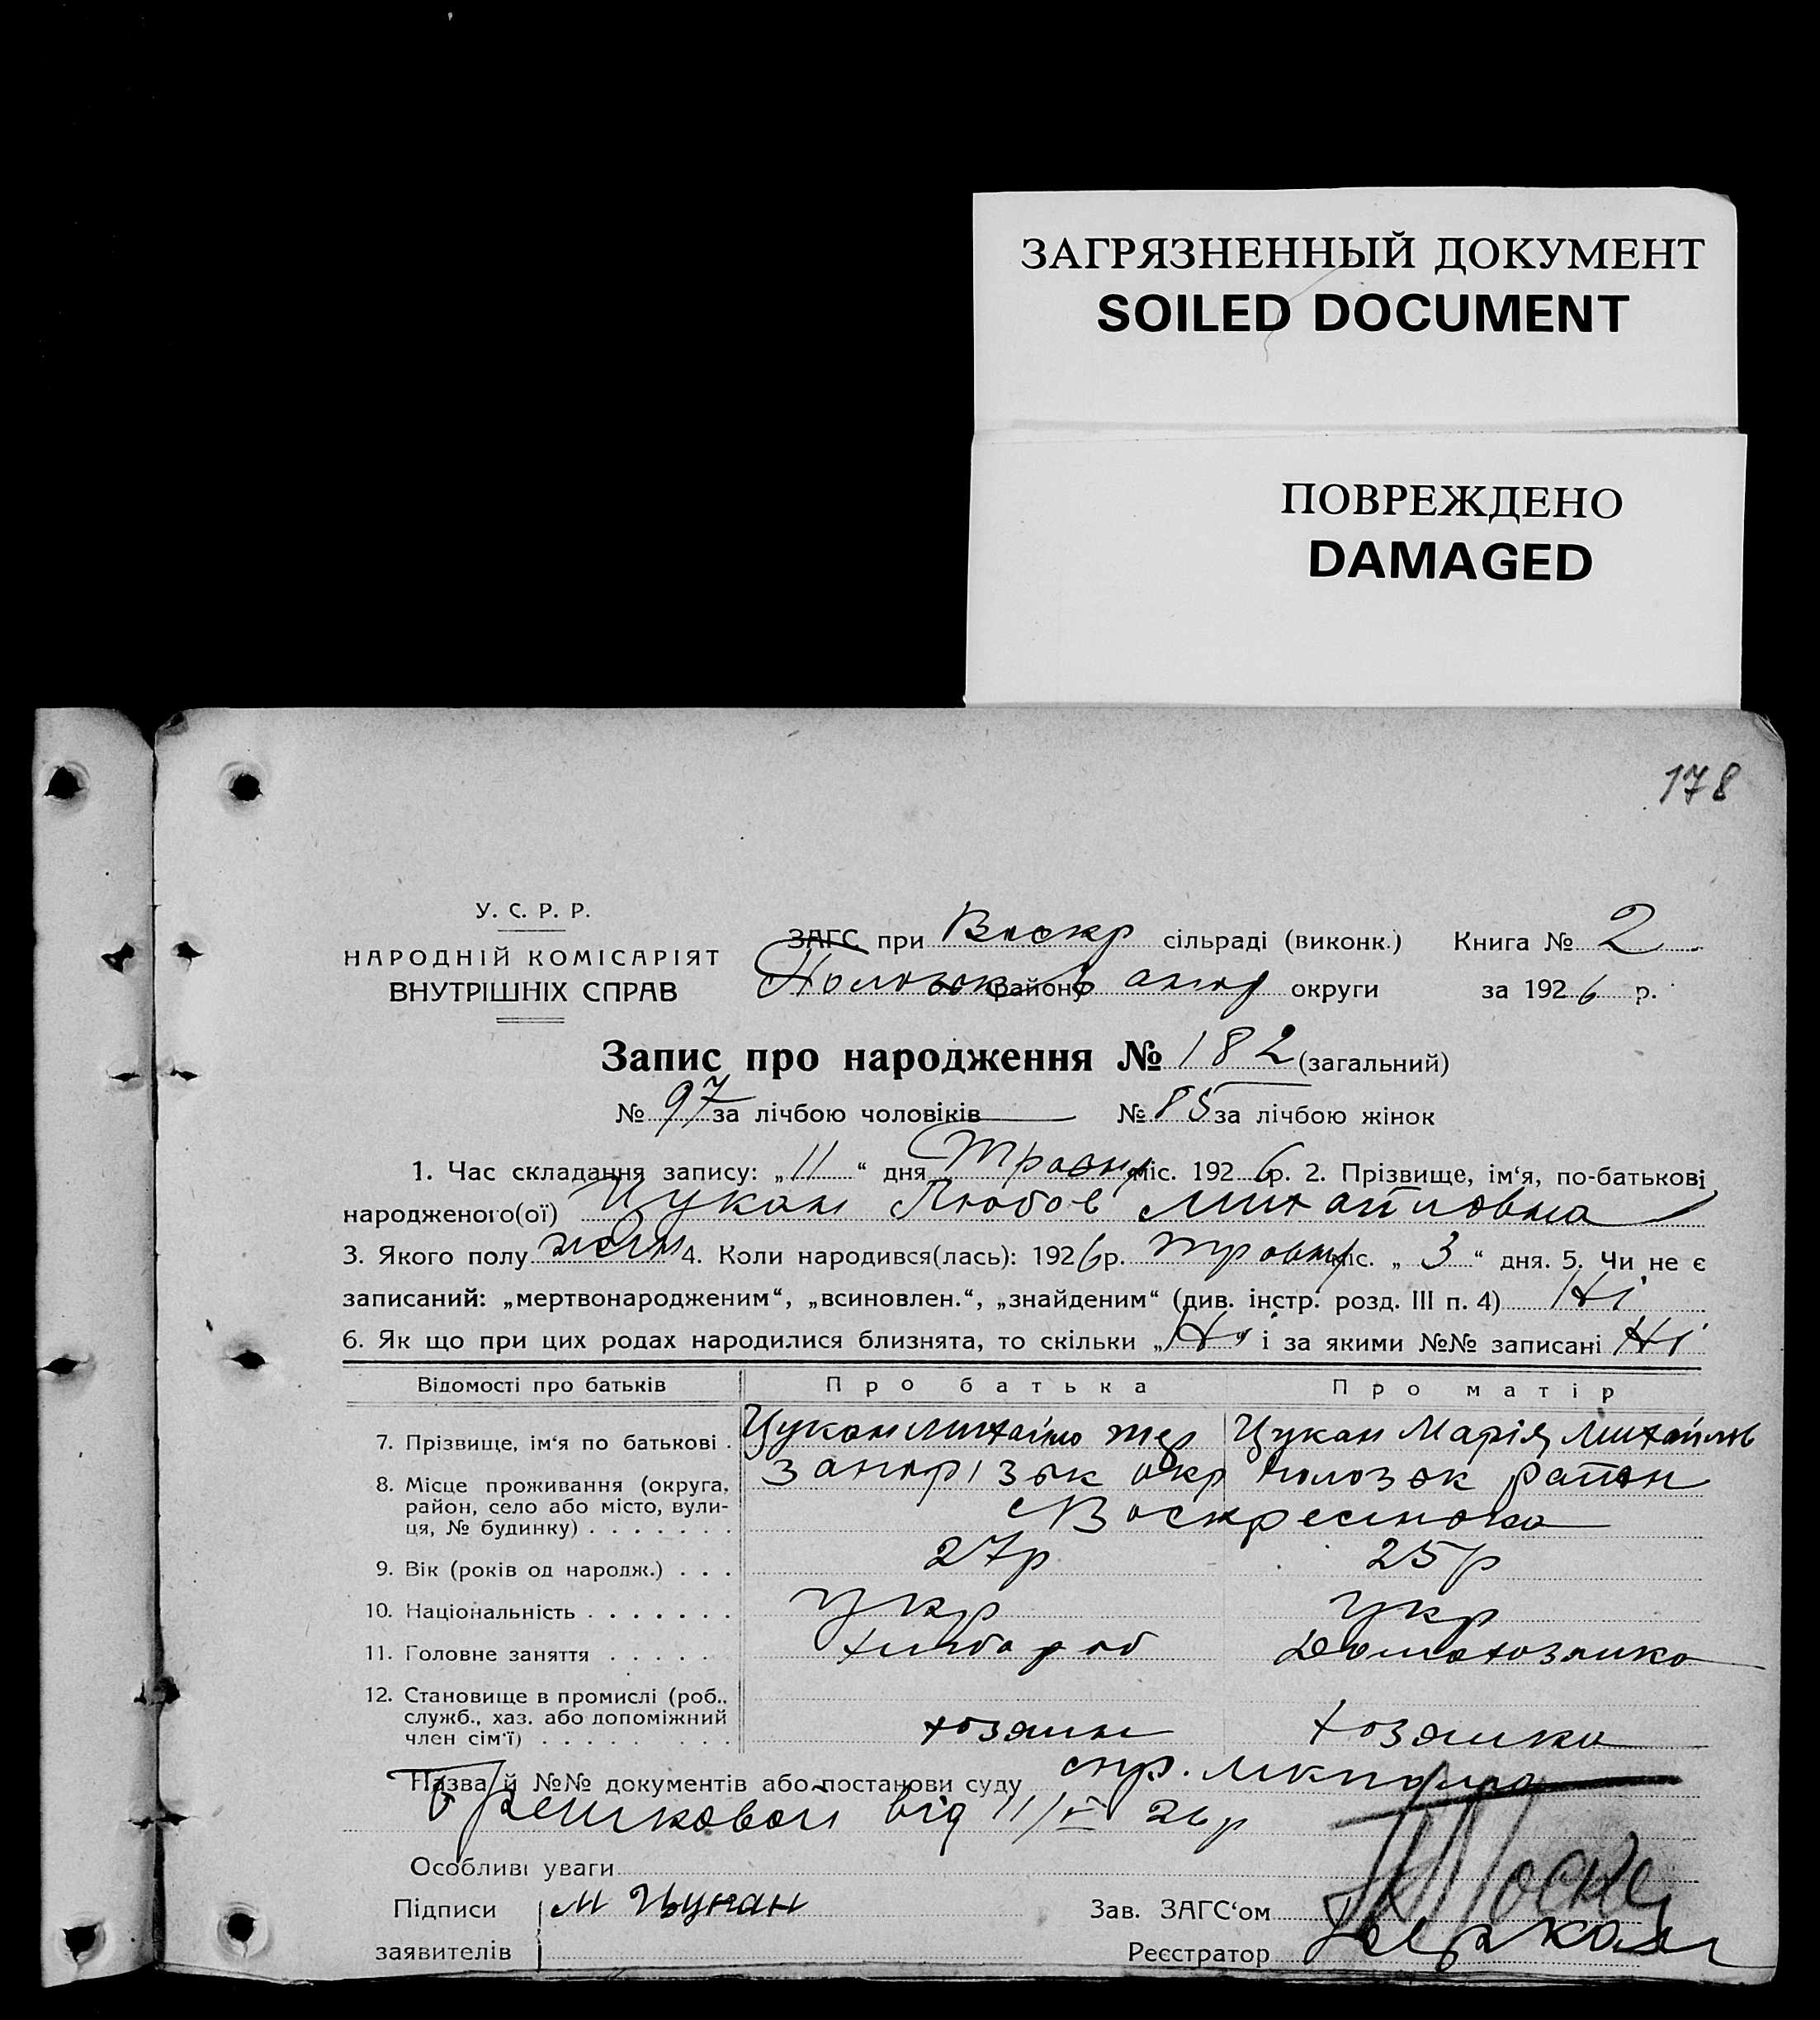 ЗАГРЯЗНЕННЫЙ ДОКУМЕНТ
SOILED DOCUMENT
ПОВРЕЖДЕНО
DAMAGED
178
У. С. Р. Р.
НАРОДНІЙ КОМІСАРІЯТ
ВНУТРІШНІХ СПРАВ
ЗАГС при Воскр сільраді (виконк.) Книга № 2
району округи за 1926 р.
Запис про народження № 182 (загальний)
№ 97 за лічбою чоловіків № 85 за лічбою жінок
1. Час складання запису: „11“ дня Травня міс. 1926 р. 2. Прізвище, ім‘я, по-батькові
народженого(ої) Цукан Любов Михайловна
3. Якого полу жін 4. Коли народився(лась): 1926 р. травня міс. „3“ дня. 5. Чи не є
записаний: „мертвонародженим“, „всиновлен.“, „знайденим“ (див. інстр. розд. III п. 4) Ні
6. Як що при цих родах народилися близнята, то скільки „Ні“ і за якими №№ записані Ні
Відомості про батьків Про батька Про матір
7. Прізвище, ім‘я по батькові . Цукан Михайло Цукан Марія Михайлов
8. Місце проживання (округа, район, село або місто, вулиця, № будинку) . . . . . . . Запорізьк окр район
Воскресенка
9. Вік (років од народж.) . . . 27р 25р
10. Національність . . . . . . . Укр Укр
11. Головне заняття . . . . . хлібороб Домохозяйка
12. Становище в промислі (роб., служб., хаз. або допоміжний член сім‘ї) . . . . . . . . хозяин хозяйка
Назва й №№ документів або постанови суду
від 11/V 26р
Особливі уваги
Підписи заявителів М Цукан
Зав. ЗАГС‘ом
Реєстратор